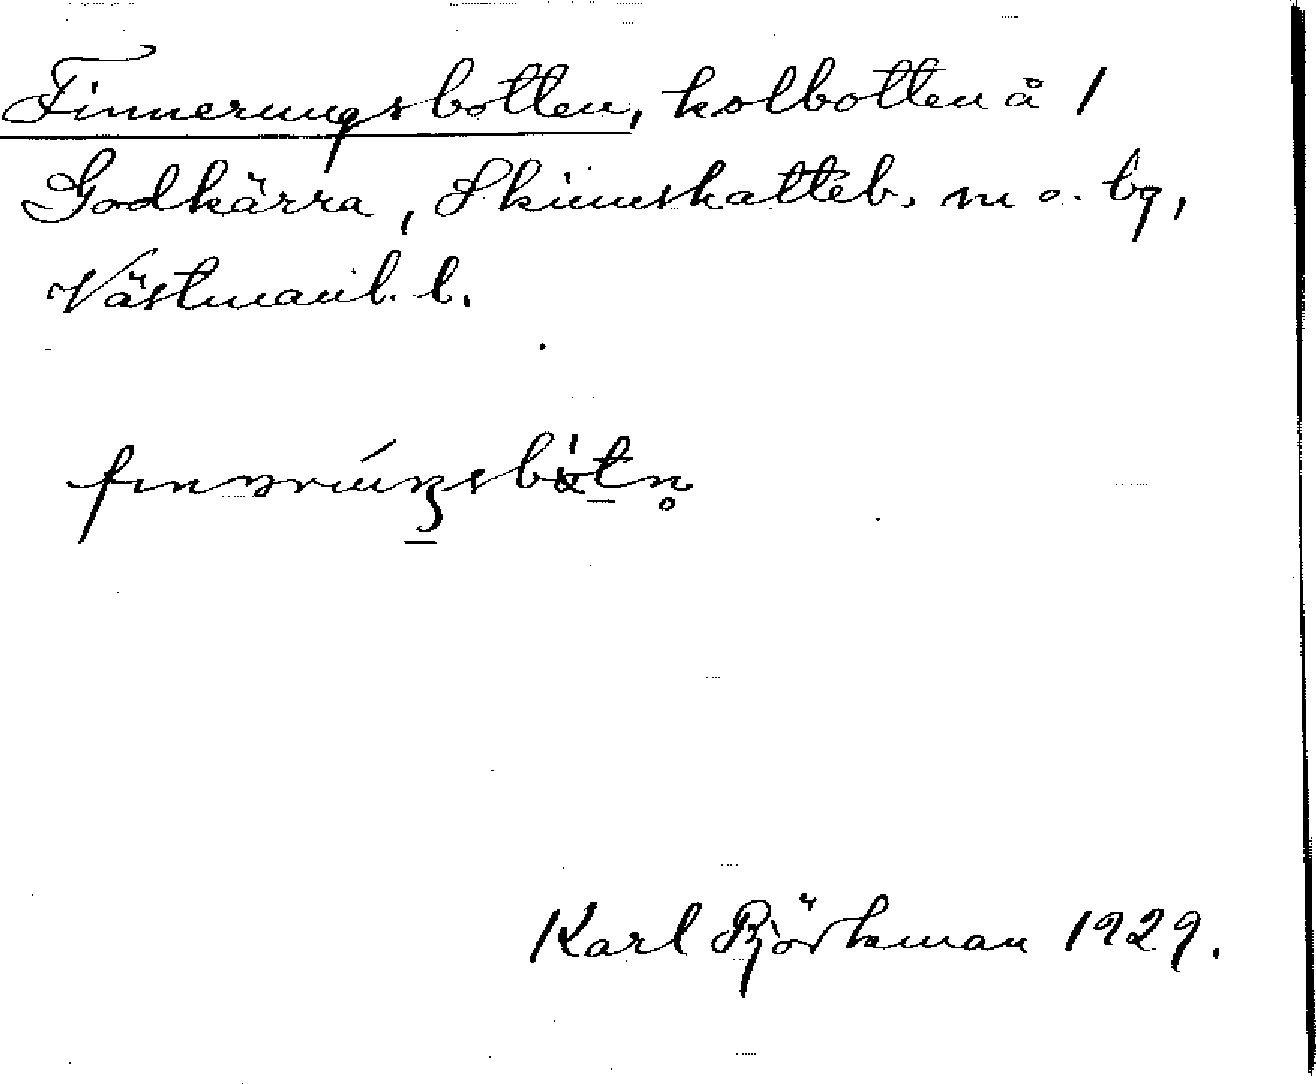 Finnerungsbotten, kolbotten å 1
Godkärra, Skinnskatteb. m o. bg,
Västmanl. l.
Karl Björkman 1929.